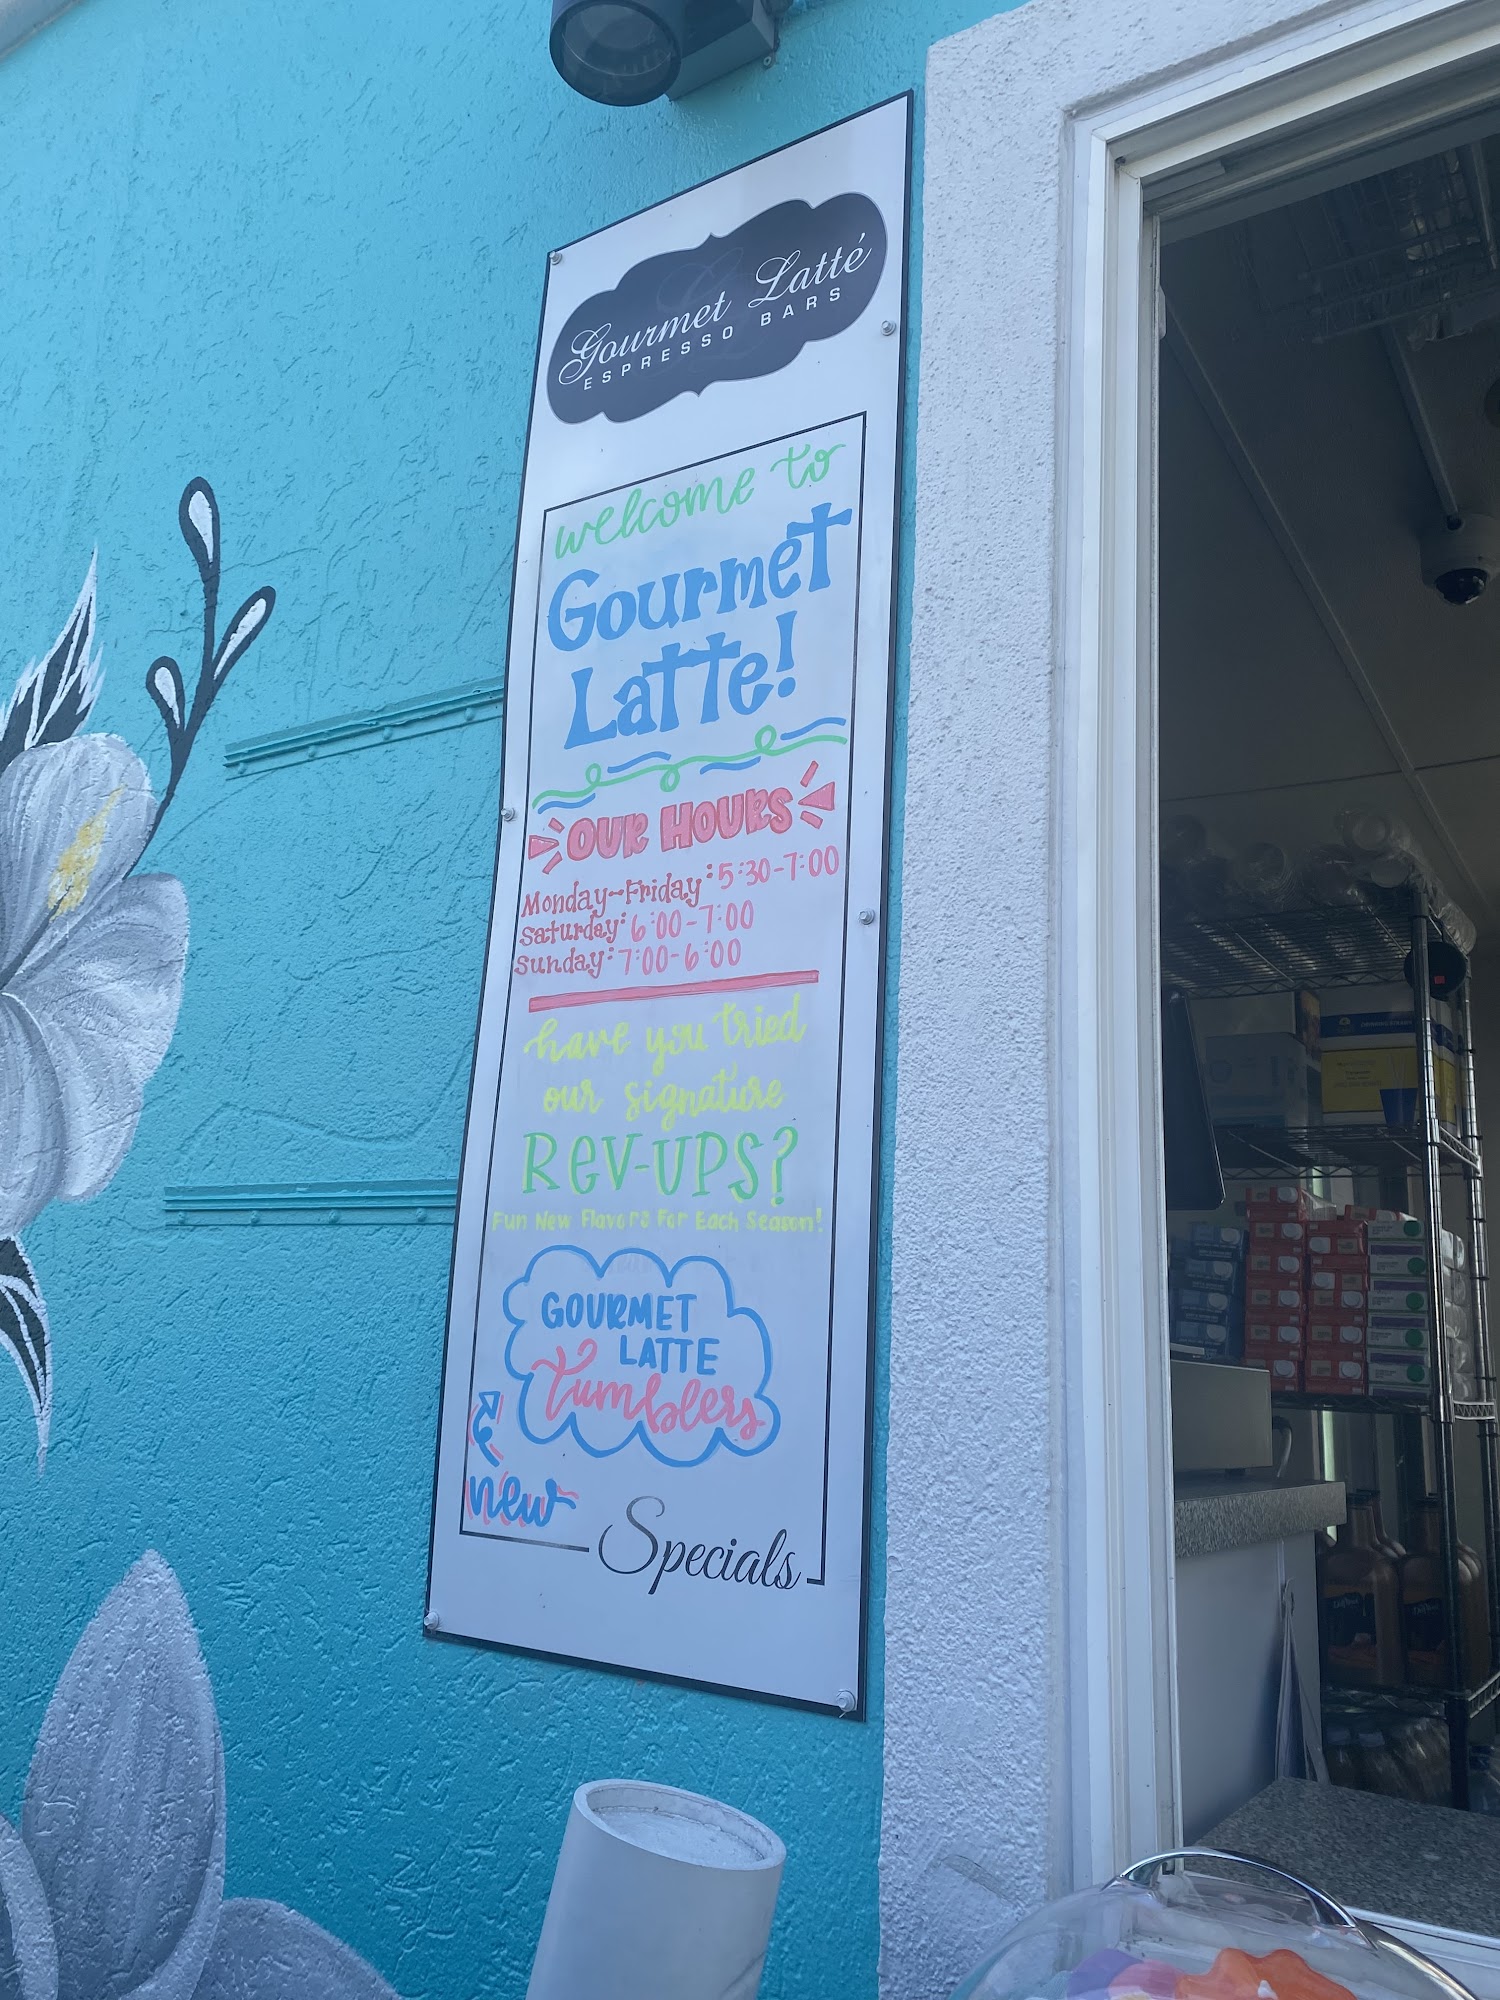 Gourmet Latté
ESPRESSO BARS
welcome to
Gourmet
Latte!
OUR HOURS
Monday-Friday: 5:30-7:00
Saturday: 6:00-7:00
Sunday: 7:00-6:00
have you tried
our signature
REV-UPS?
Fun New Flavors For Each Season!
GOURMET
LATTE
tumblers
new
Specials